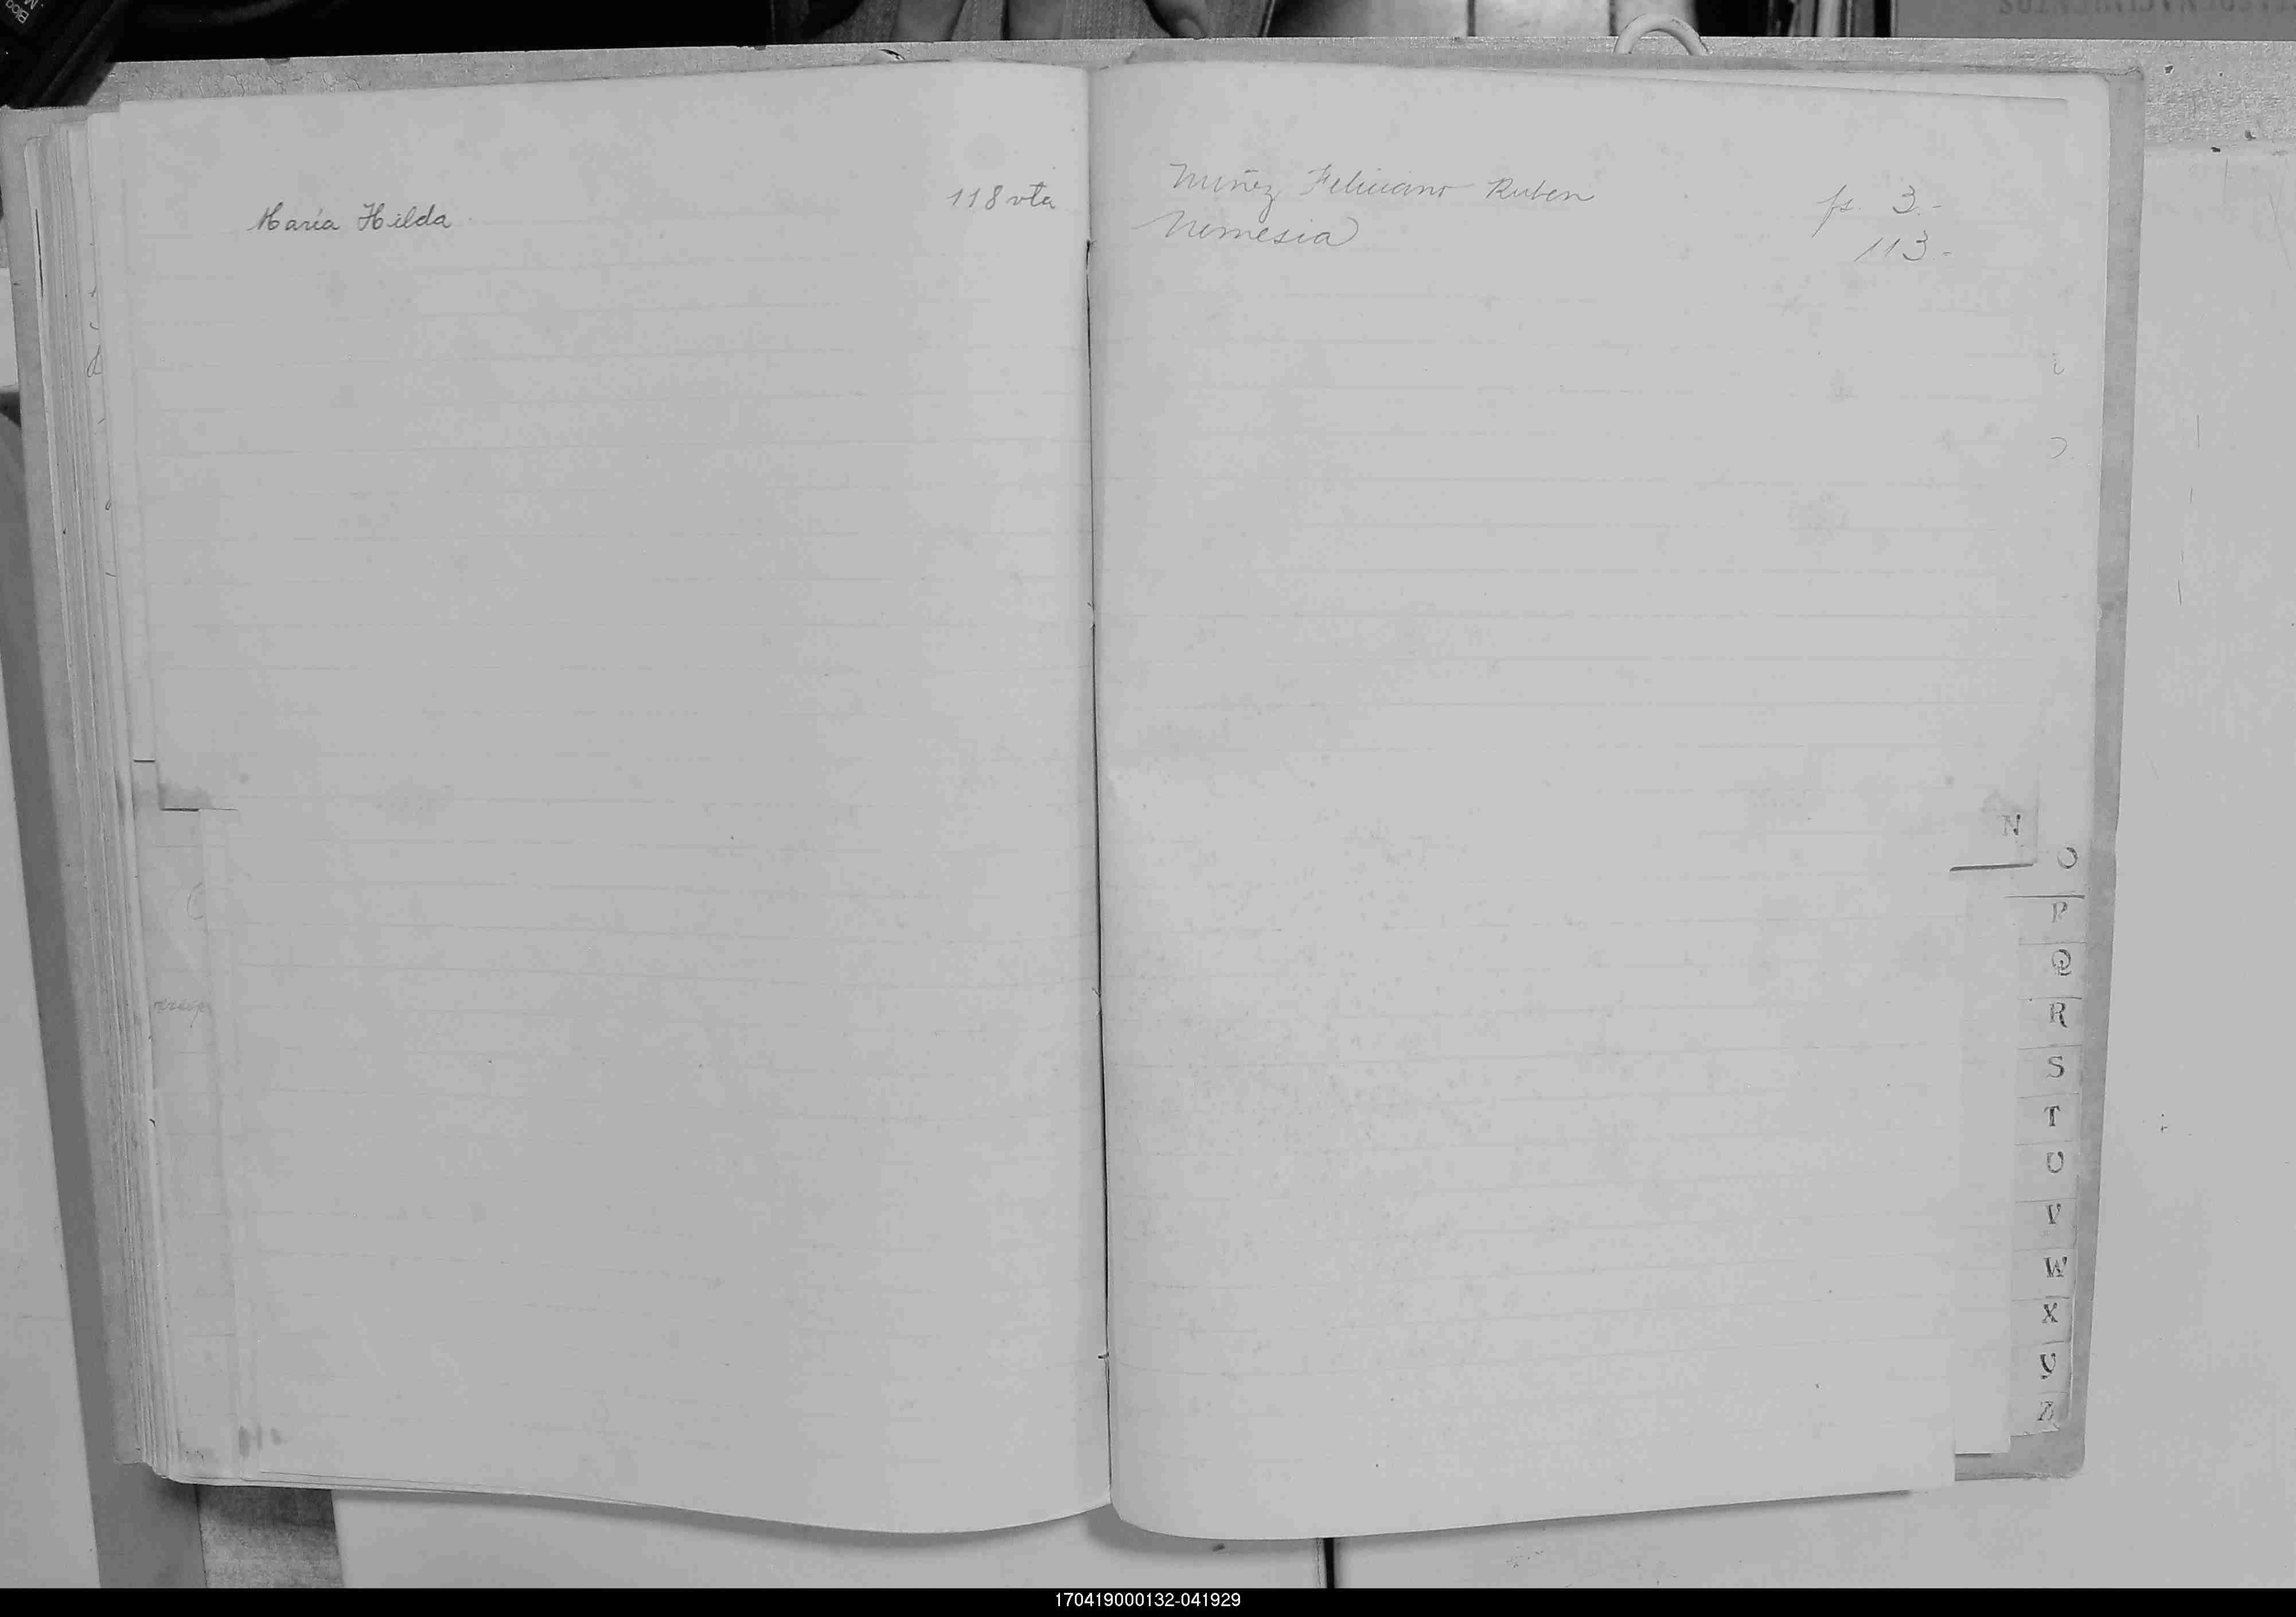 María Hilda 118 vta
Nuñez Feliciano Ruben fs. 3.-
Nemesia 113-
N
O
P
Q
R
S
T
U
V
W
X
Y
Z
170419000132-041929